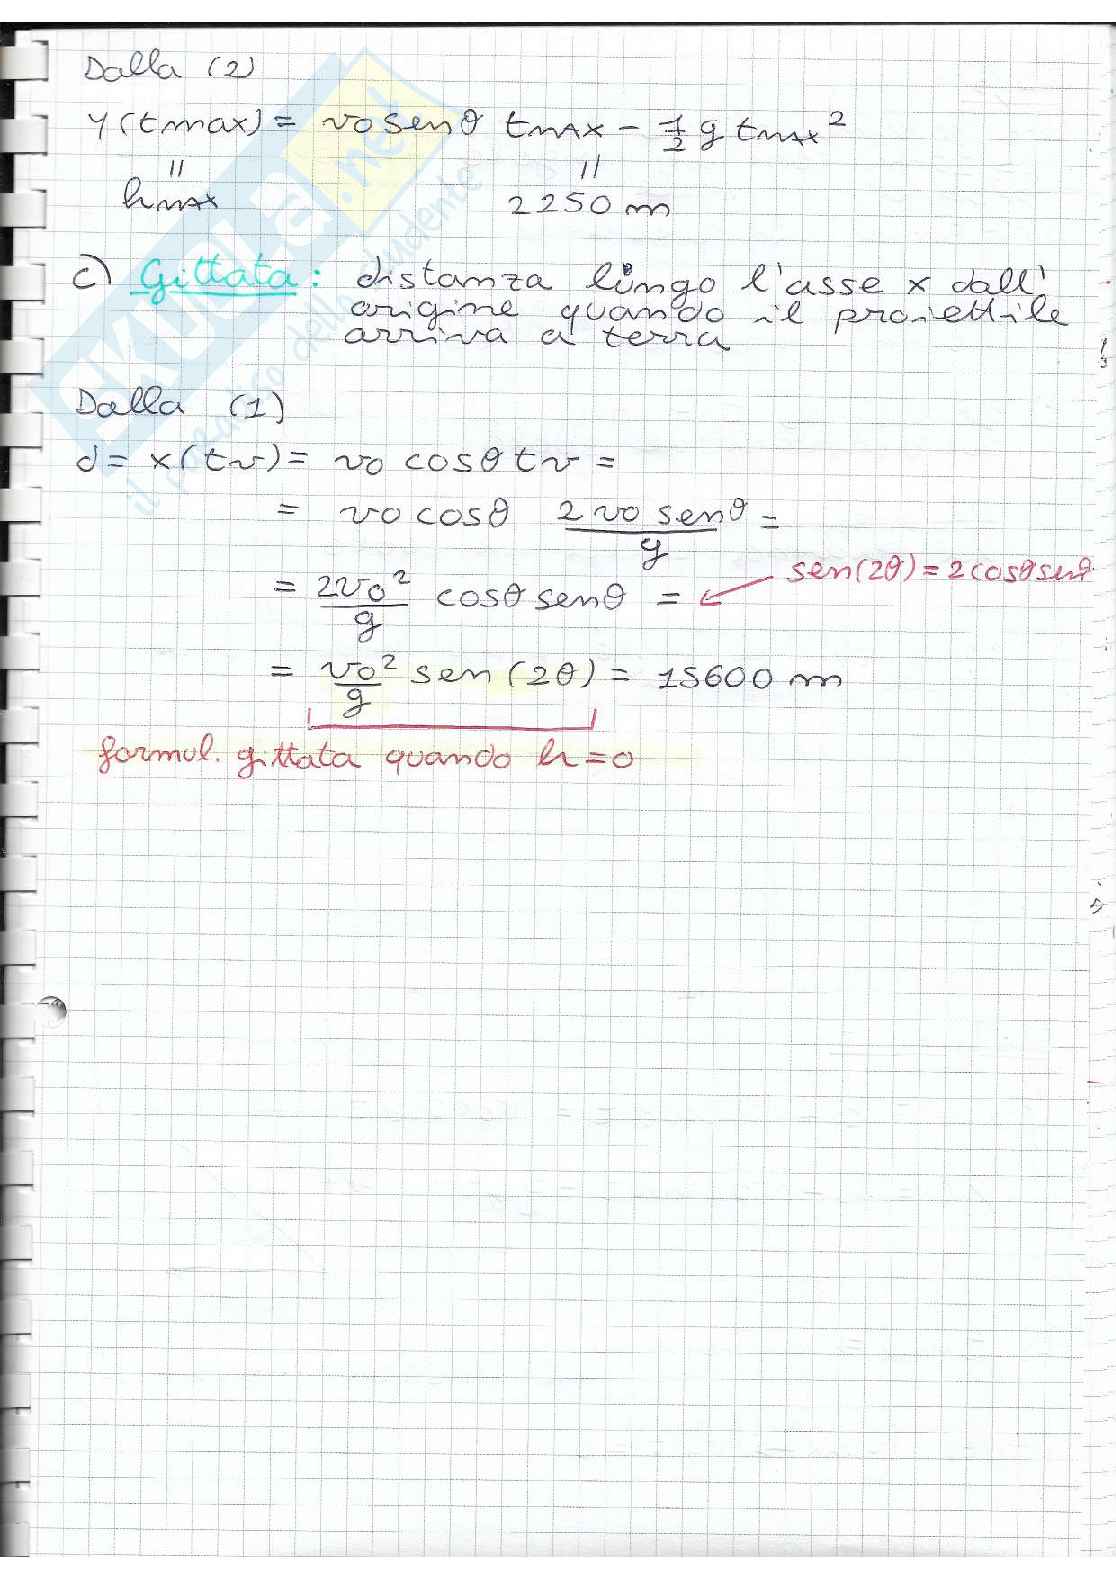 Dalla (2)
y(tmax) = v0 senθ tmax - 1/2 g tmax²
= =
hmax 2250 m
c) Gittata: distanza lungo l'asse x dall'
origine quando il proiettile
arriva a terra
Dalla (1)
d = x(tv) = v0 cosθ tv =
= v0 cosθ 2 v0 senθ / g =
sen(2θ) = 2 cosθ senθ
= 2v0²/g cosθ senθ =
= v0²/g sen(2θ) = 15600 m
formul. gittata quando h=0
SKUOLA.net
il paradiso dello studente